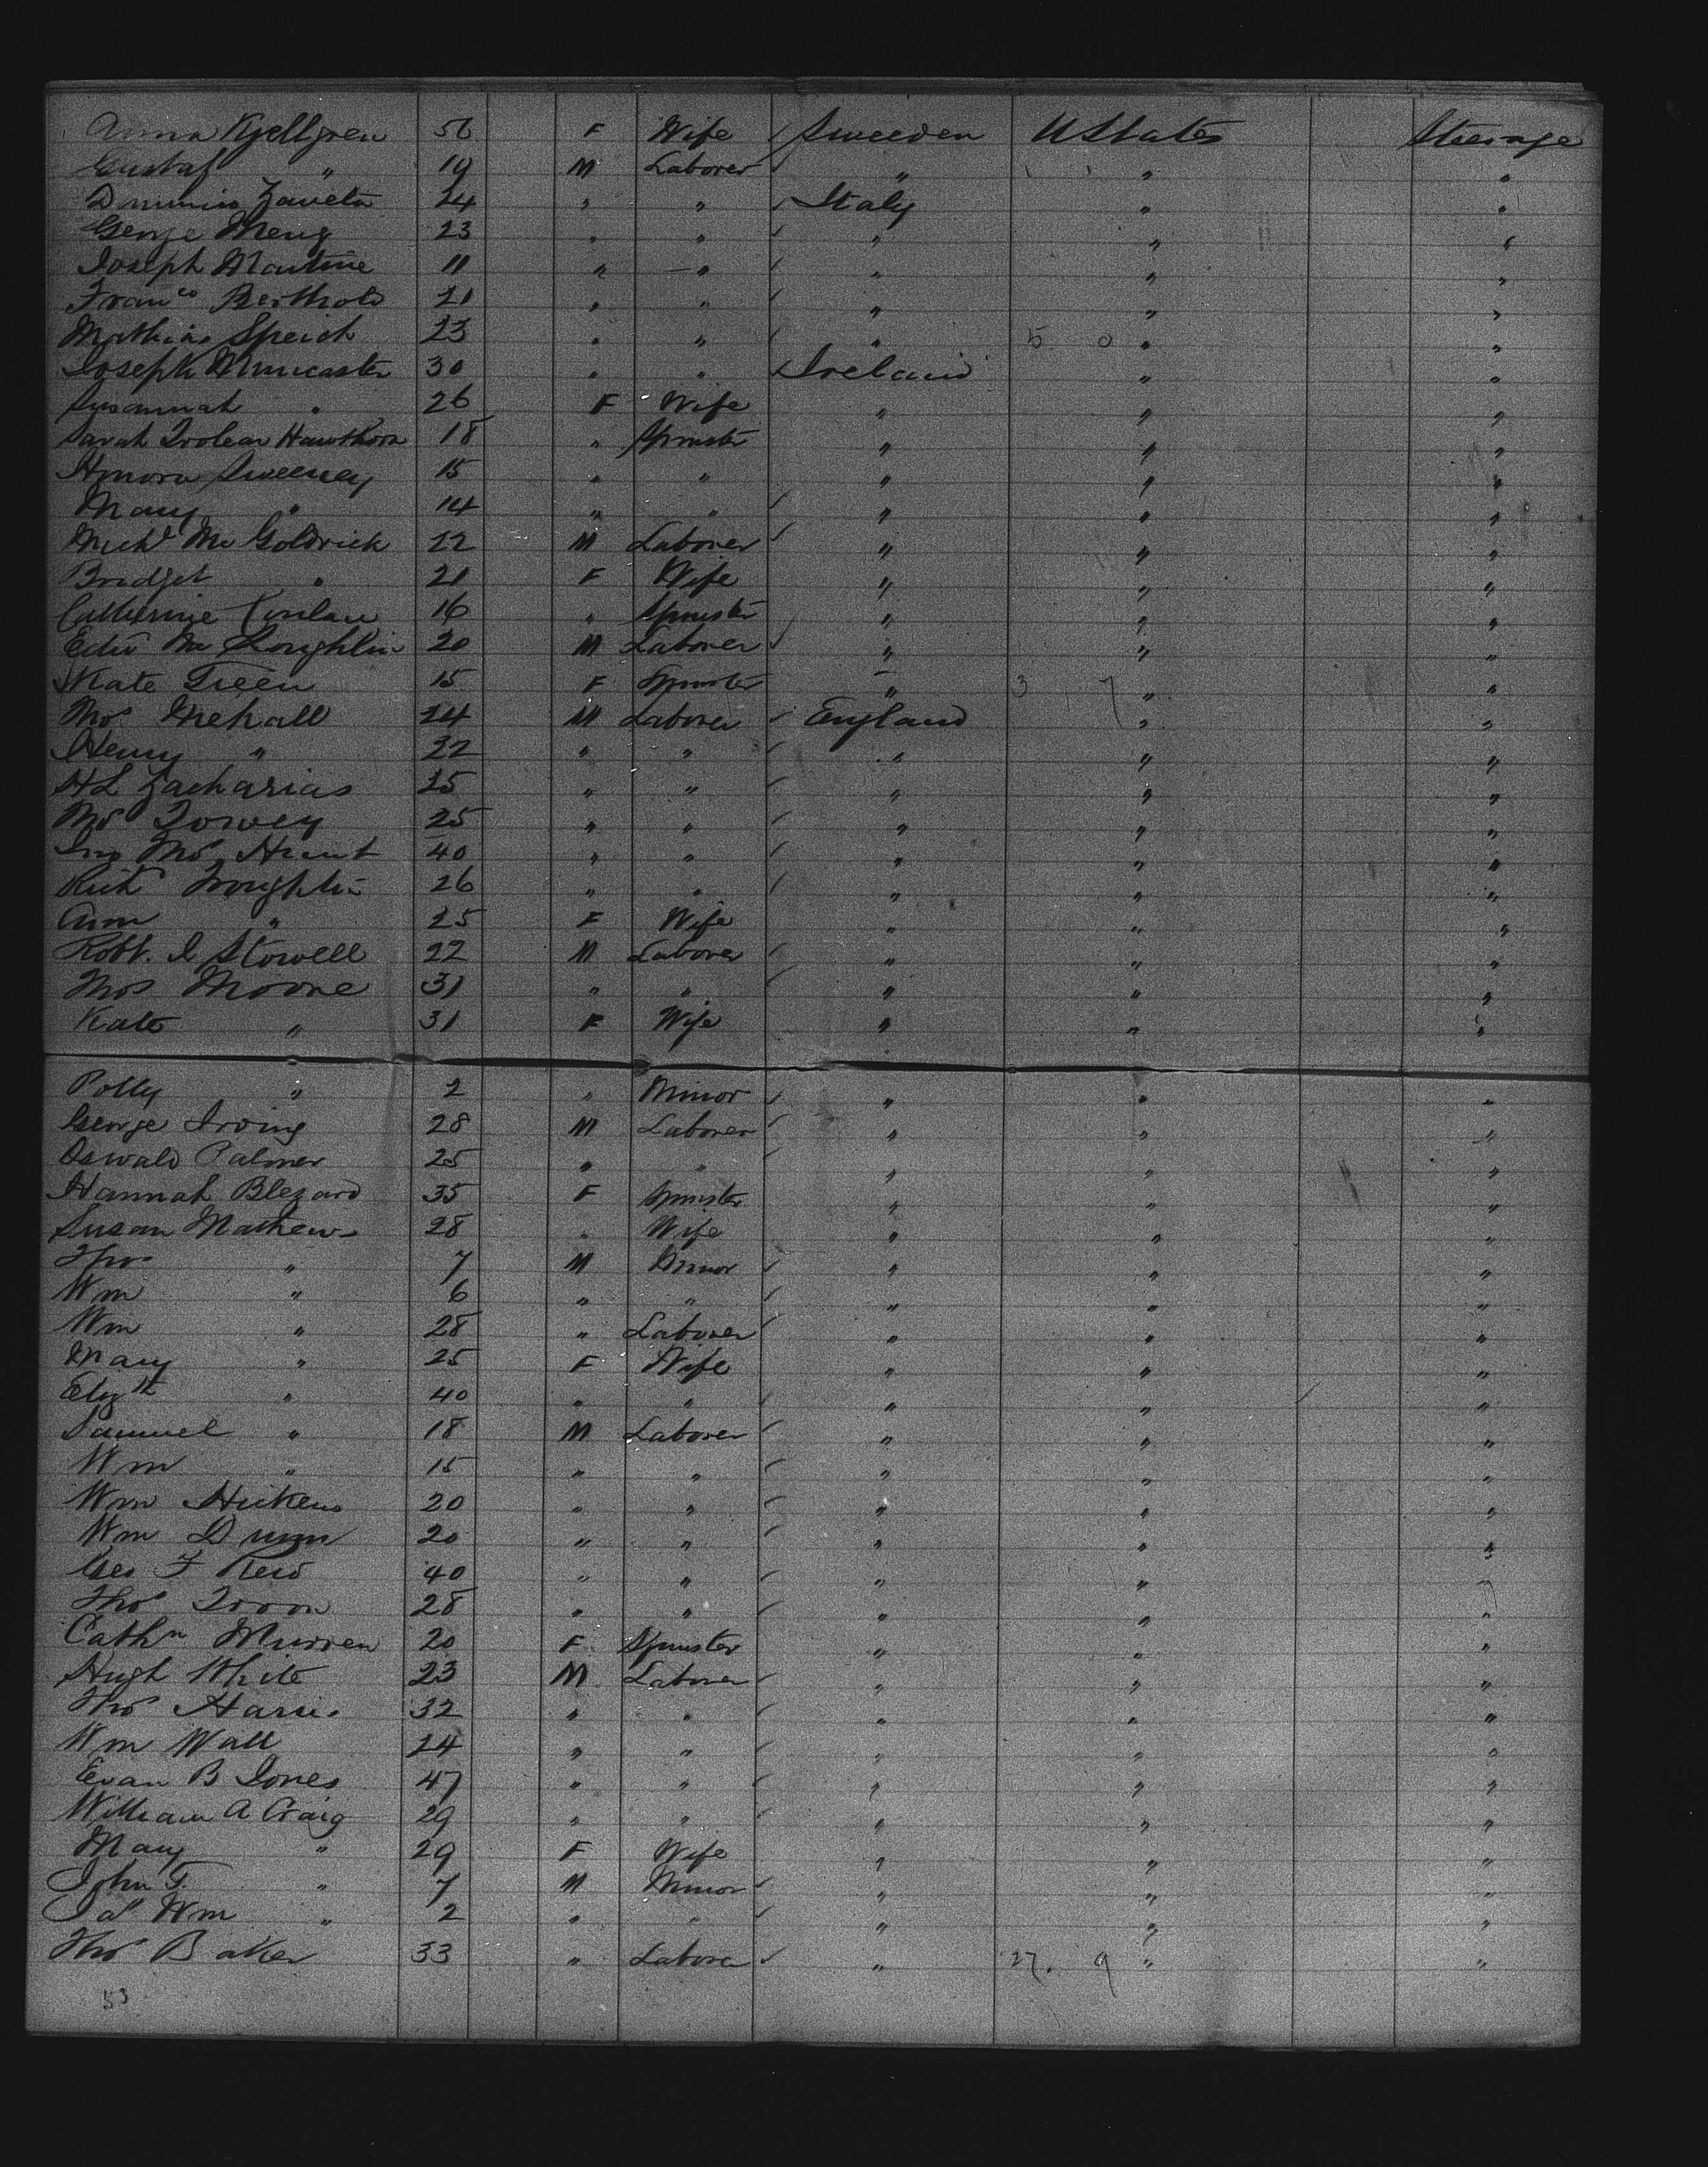 Anna Kjellgren 56 F Wife Sweeden U States Steerage
Gustaf " 19 M Laborer " " "
Dominico Zaveta 24 " " Italy " "
George Meng 23 " " " " "
Joseph Martine 11 " " " " "
Franco Berthold 21 " " " " "
Mathias Speich 23 " " " 5 0 " "
Joseph Muncaster 30 " " Ireland " "
Susannah " 26 F Wife " " "
Sarah Hawthorn 18 " Spinster " " "
Honora Sweeney 15 " " " " "
Mary " 14 " " " " "
Michl Mc Goldrick 22 M Laborer " " "
Bridget " 21 F Wife " " "
Catherine Conlan 16 " Spinster " " "
Edwd Mc Loughlin 20 M Laborer " " "
Kate Green 15 F Spinster " 3 7 " "
Thos 24 M Laborer England " "
Henry " 22 " " " " "
H L Zacharias 25 " " " " "
Thos Towey 25 " " " " "
Jno Thos Hunt 40 " " " " "
Richd Troughton 26 " " " " "
Ann " 25 F Wife " " "
Robt. J Stowell 22 M Laborer " " "
Thos Moore 31 " " " " "
Kate " 31 F Wife " " "
Polly " 2 " Minor " " "
George Irving 28 M Laborer " " "
Oswald Palmer 25 " " " " "
Hannah Blezard 35 F Spinster " " "
Susan Mathews 28 " Wife " " "
Thos " 7 M Minor " " "
Wm " 6 " " " " "
Wm " 28 " Laborer " " "
Mary " 25 F Wife " " "
Elizth " 40 " " " " "
Samuel " 18 M Laborer " " "
Wm " 15 " " " " "
Wm Hickens 20 " " " " "
Wm Dunn 20 " " " " "
Geo F Reid 40 " " " " "
Thos Troon 28 " " " " "
Cathn Murren 20 F Spinster " " "
Hugh White 23 M Laborer " " "
Thos Harris 32 " " " " "
Wm Wall 24 " " " " "
Evan B Jones 47 " " " " "
William A Craig 29 " " " " "
Mary " 29 F Wife " " "
John T. " 7 M Minor " " "
Jas Wm " 2 " " " " "
Thos Baker 33 " Laborer " 27. 9 " "
53